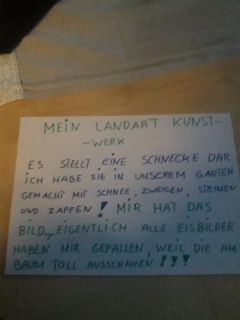 MEIN LANDART KUNST-
-WERK
ES STELLT EINE SCHNECKE DAR
ICH HABE SIE IN UNSEREM GARTEN
GEMACHT MIT SCHNEE, ZWEIGEN, STEINEN
UND ZAPFEN! MIR HAT DAS
BILD, EIGENTLICH ALLE EISBILDER
HABEN MIR GEFALLEN, WEIL DIE AM
BAUM TOLL AUSSCHAUEN!!!